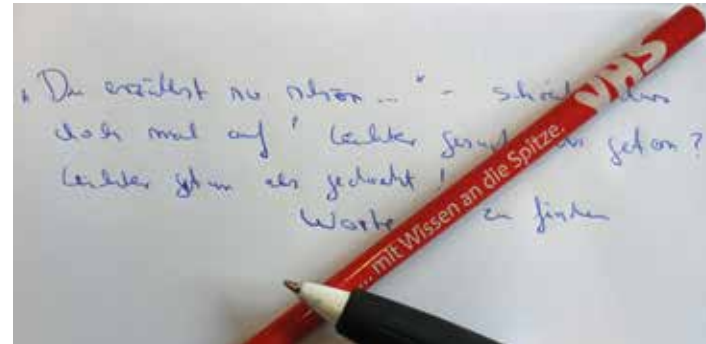 „Du erzählst so schön ..." - schreib
doch mal auf! Leichter gesagt als getan?
Leichter getan als gedacht!
Worte zu finden
VHS
... mit Wissen an die Spitze.